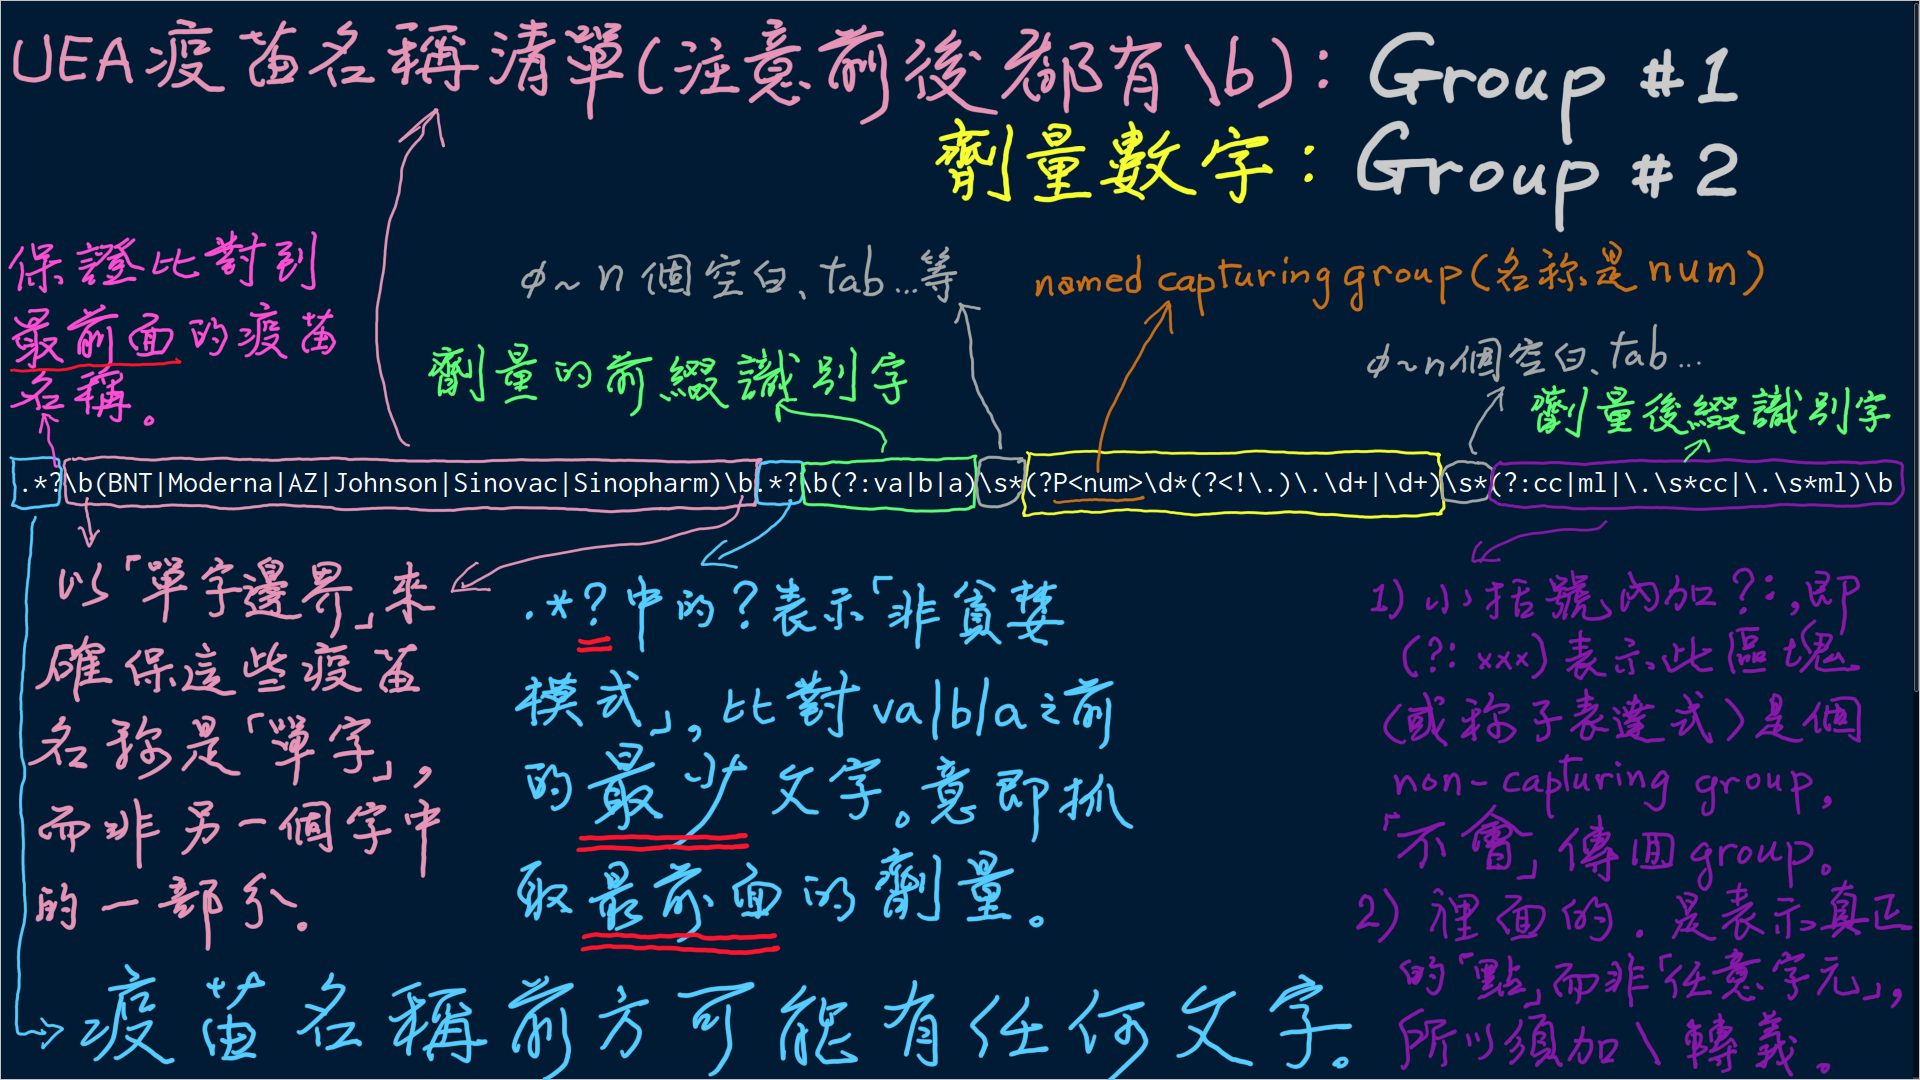 UEA疫苗名稱清單(注意前後都有\b): Group #1
劑量數字: Group #2
保證比對到
最前面的疫苗
名稱。
φ~n個空白、tab...等
named capturing group(名称是num)
劑量的前綴識別字
φ~n個空白、tab...
劑量後綴識別字
.*?\b(BNT|Moderna|AZ|Johnson|Sinovac|Sinopharm)\b.*?\b(?:va|b|a)\s*(?P<num>\d*(?<!\.)\.\d+|\d+)\s*(?:cc|ml|\.\s*cc|\.\s*ml)\b
以「單字邊界」來
確保這些疫苗
名称是「單字」,
而非另一個字中
的一部分.
.*?中的?表示「非貪婪
模式」,比對va|b|a之前
的最少文字。意即抓
取最前面的劑量。
1)小括號內加?:,即
(?:xxx)表示此區塊
(或称子表達式)是個
non-capturing group,
「不會」傳回group。
2)裡面的.是表示真正
的「點」而非「任意字元」,
所以須加\轉義。
疫苗名稱前方可能有任何文字。